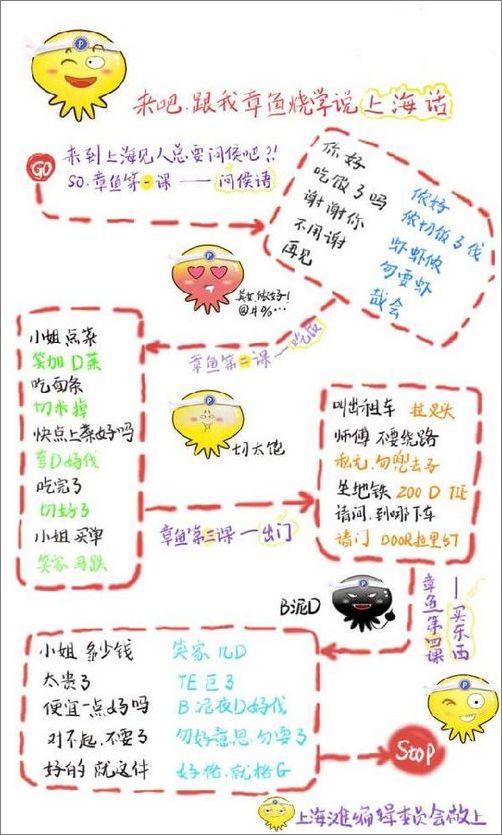 来吧.跟我章鱼烧学说上海话
GO
来到上海见人总要问侯吧?!
SO.章鱼第一课——问侯语
你好 侬好
吃饭了吗 侬切饭了伐
谢谢你 虾虾侬
不用谢 勿要虾
再见 哉会
美女侬好!
@#%…
章鱼第二课—吃饭
小姐点菜
笑加D菜
吃面条
切米掉
快点上菜好吗
弯D好伐
吃完了
切好了
小姐买单
笑家马跌
切太饱
章鱼第三课—出门
叫出租车 拉叉头
师傅不要绕路
私无.勿兜去子
坐地铁 200 D TIE
请问.到哪下车
请门 DOOR拉里5T
B泥D
章鱼第四课
—买东西
小姐 多少钱 笑家 几D
太贵了 TE 巨了
便宜一点好吗 B 泥夜D好伐
对不起.不要了 勿好意思.勿要了
好的 就这件 好格.就格G
Stop
上海滩编辑委员会敬上